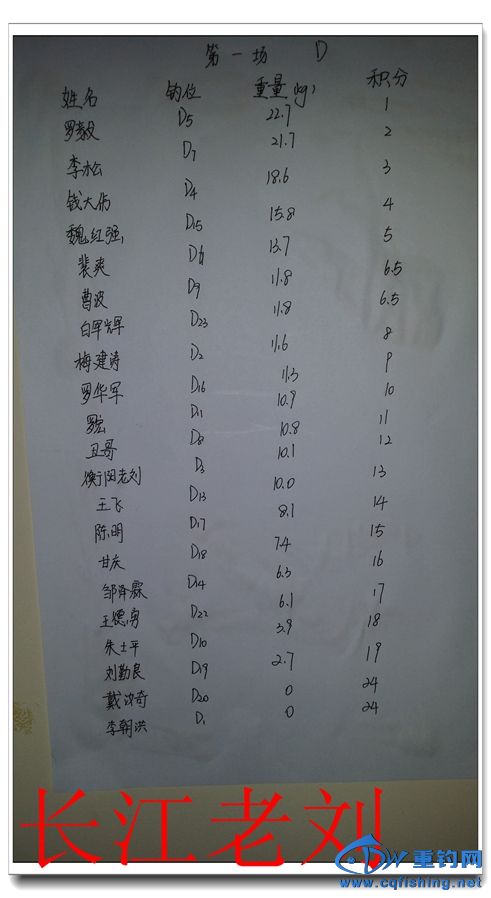 第一场 D
姓名 钓位 重量(kg) 积分
罗毅 D5 22.7 1
李松 D7 21.7 2
钱大伟 D4 18.6 3
魏红强 D15 15.8 4
裴爽 13.7 5
曹波 D9 11.8 6.5
白军辉 D23 11.8 6.5
梅建涛 D2 11.6 8
罗华军 D16 11.3 9
罗宏 10.9 10
丑哥 D8 10.8 11
衡阳老刘 D3 10.1 12
王飞 D13 10.0 13
陈明 D17 8.1 14
甘庆 D18 7.4 15
邹泽霖 D14 6.3 16
王德勇 D22 6.1 17
朱士平 D10 3.9 18
刘勤良 D19 2.7 19
戴汝奇 D20 0 24
李朝洪 D1 0 24
长江老刘
重钓网
www.cqfishing.net